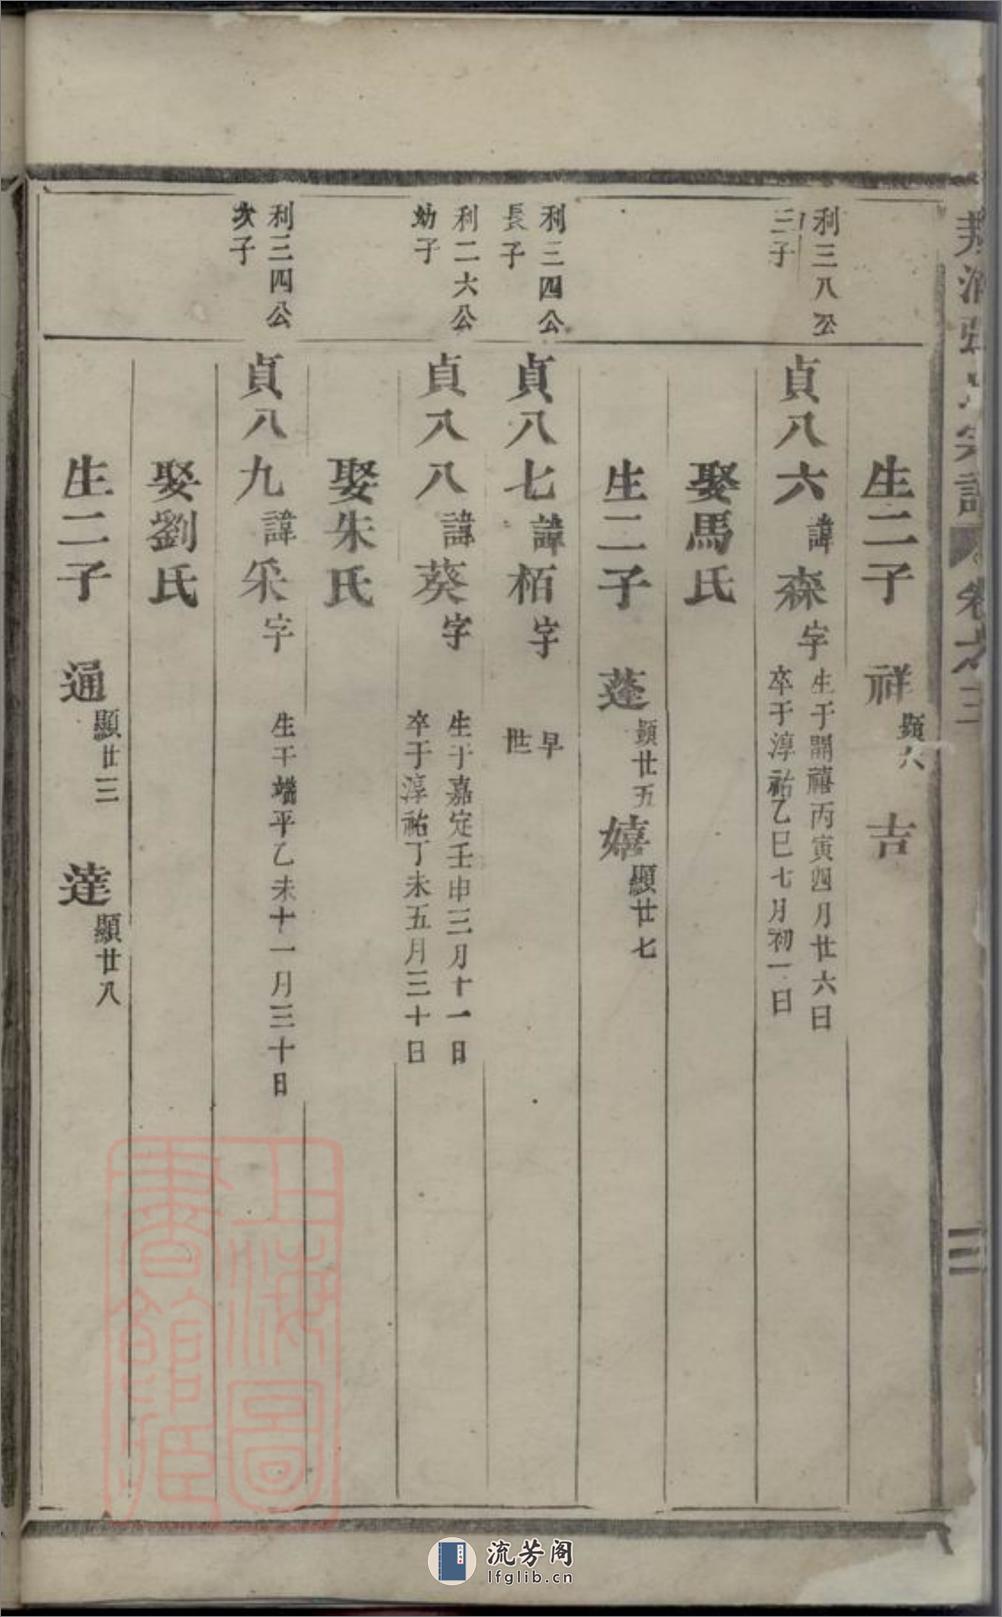 宗譜 卷六 三
生二子 祥 顯六 吉
利三八公
三子
貞八六 諱森 字
生于開禧丙寅四月廿六日
卒于淳祐乙巳七月初一日
娶馬氏
生二子 蓬 顯廿五 嬉 顯廿七
利三四公
長子
貞八七 諱栢 字
早世
利二六公
幼子
貞八八 諱葵 字
生于嘉定壬申三月十一日
卒于淳祐丁未五月三十日
娶朱氏
利三四公
次子
貞八九 諱采 字
生于端平乙未十一月三十日
娶劉氏
生二子 通 顯廿三 達 顯廿八
上海圖
書館藏
流芳阁
lfglib.cn